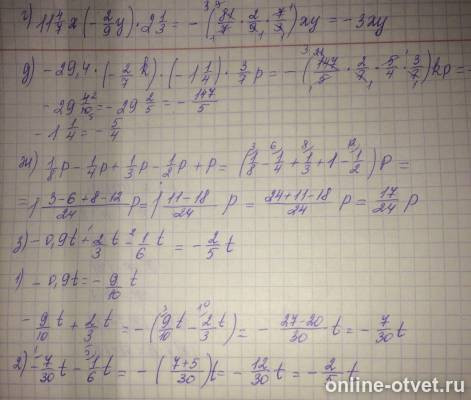 г) 11 4/7 x (- 2/9 y) · 2 1/3 = - (81/7 · 2/9 · 7/3) xy = -3xy
д) -29,4 · (- 2/7 k) · (-1 1/4) · 3/7 p = - (147/5 · 2/7 · 5/4 · 3/7) kp =
-29 4/10 = -29 2/5 = - 147/5
-1 1/4 = - 5/4
ж) 1/8 p - 1/4 p + 1/3 p - 1/2 p + p = (1/8 - 1/4 + 1/3 + 1 - 1/2) p =
= 1 3-6+8-12/24 p = 1 11-18/24 p = 24+11-18/24 p = 17/24 p
з) -0,9t + 2/3 t - 1/6 t = - 2/5 t
1) -0,9t = - 9/10 t
- 9/10 t + 2/3 t = - (9/10 t - 2/3 t) = - 27-20/30 t = - 7/30 t
2) - 7/30 t - 1/6 t = - (7+5/30) t = - 12/30 t = - 2/5 t
online-otvet.ru